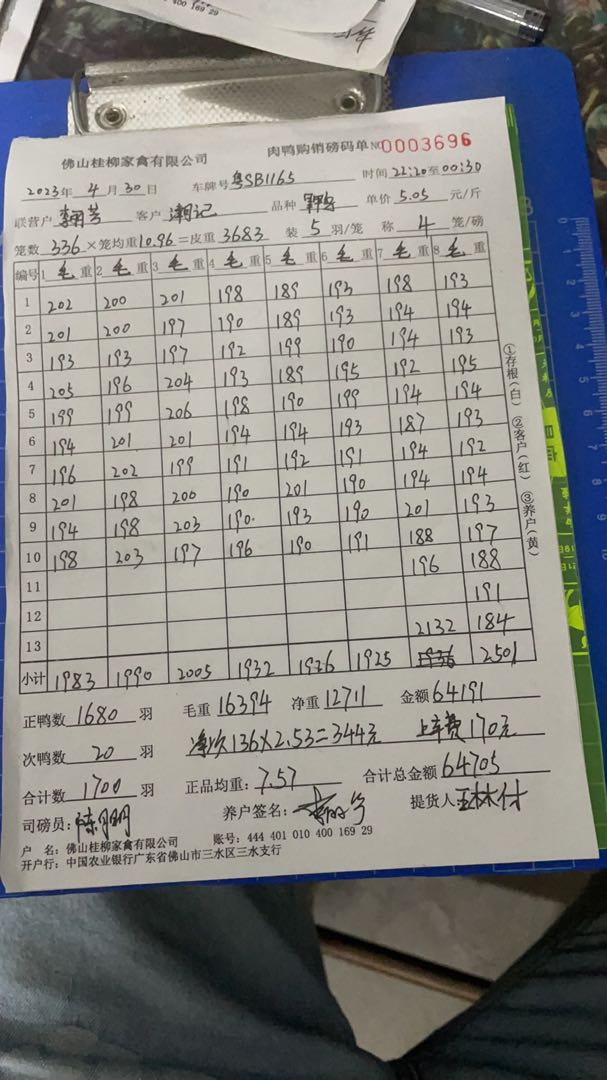 400 169 29
佛山桂柳家禽有限公司 肉鸭购销磅码单 NO 0003696
2023年 4 月 30 日 车牌号 粤SB1165 时间 22:20至00:30
联营户 客户 潮记 品种 单价 5.05 元/斤
笼数 336 × 笼均重 10.96 = 皮重 3683 装 5 羽/笼 称 4 笼/磅
编号 1 毛 重 2 毛 重 3 毛 重 4 毛 重 5 毛 重 6 毛 重 7 毛 重 8 毛 重
1 202 200 201 198 189 193 198 193
2 201 200 197 190 189 193 194 194
3 193 193 197 192 199 190 194 193
4 205 196 204 193 189 195 192 195
5 199 199 206 198 190 199 194 194
6 194 201 201 194 194 193 187 193
7 196 202 199 191 192 191 194 192
8 201 198 200 190 201 190 194 194
9 194 198 203 190 193 190 201 193
10 198 203 197 196 190 191 188 197
11 196 188
12 191
13 2132 184
小计 1983 1990 2005 1932 1926 1925 1936 2501
正鸭数 1680 羽 毛重 16394 净重 12711 金额 64191
次鸭数 20 羽 净次136×2.53=344元 上车费170元
合计数 1700 羽 正品均重: 7.57 合计总金额 64705
司磅员: 养户签名: 提货人
户 名: 佛山桂柳家禽有限公司 账号: 444 401 010 400 169 29
开户行: 中国农业银行广东省佛山市三水区三水支行
①存根(白) ②客户(红) ③养户(黄)